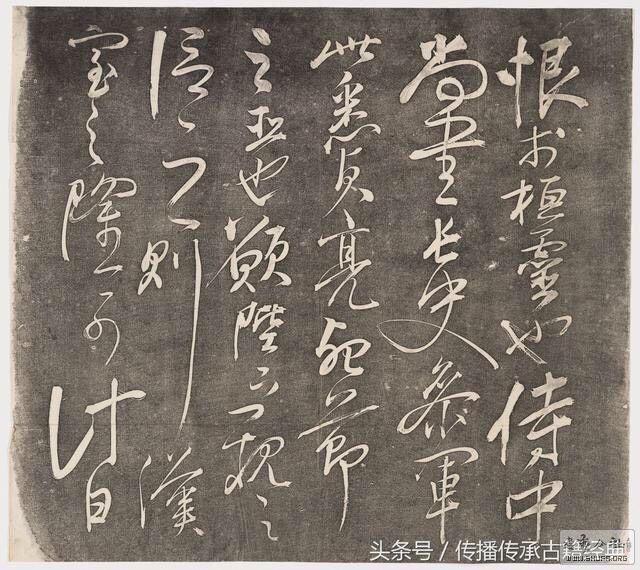 恨於桓靈也侍中
尚書長史參軍
此悉貞亮死節
之臣也願陛下親之
信之則漢
室之隆可計日
头条号 / 传播传承古籍经典